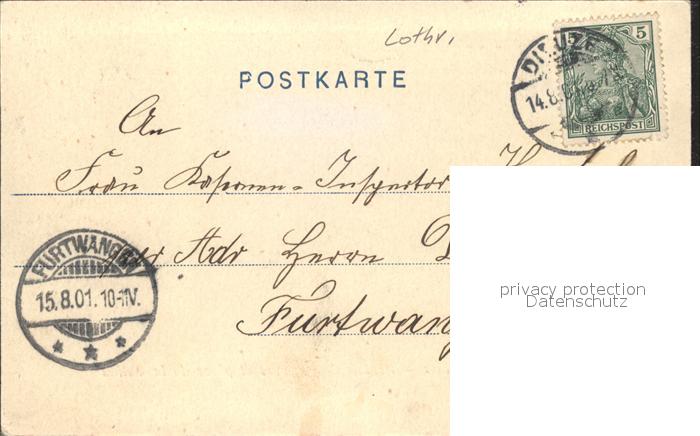 Lothr.
POSTKARTE
DIEUZE
14.8.
5
REICHSPOST
An
Frau Kasernen-Inspector
per Adr Herrn
Furtwang
FURTWANGEN
15.8.01. 10-11V.
privacy protection
Datenschutz